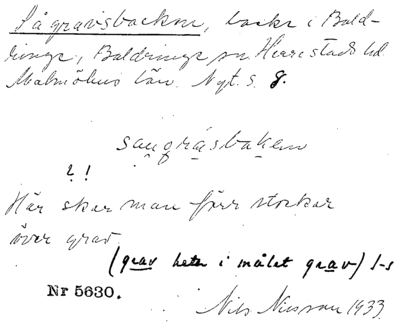 Sågravsbacken, backe i Bald-
ringe, Baldringe sn Herrestads hd.
Malmöhus län. Nyt. s. 8.
saugrásbaken
? !
Här skar man förr stockar
över grav
(grav heter i målet grav) I-s
Nr 5630.
Nils Nilsson 1933.